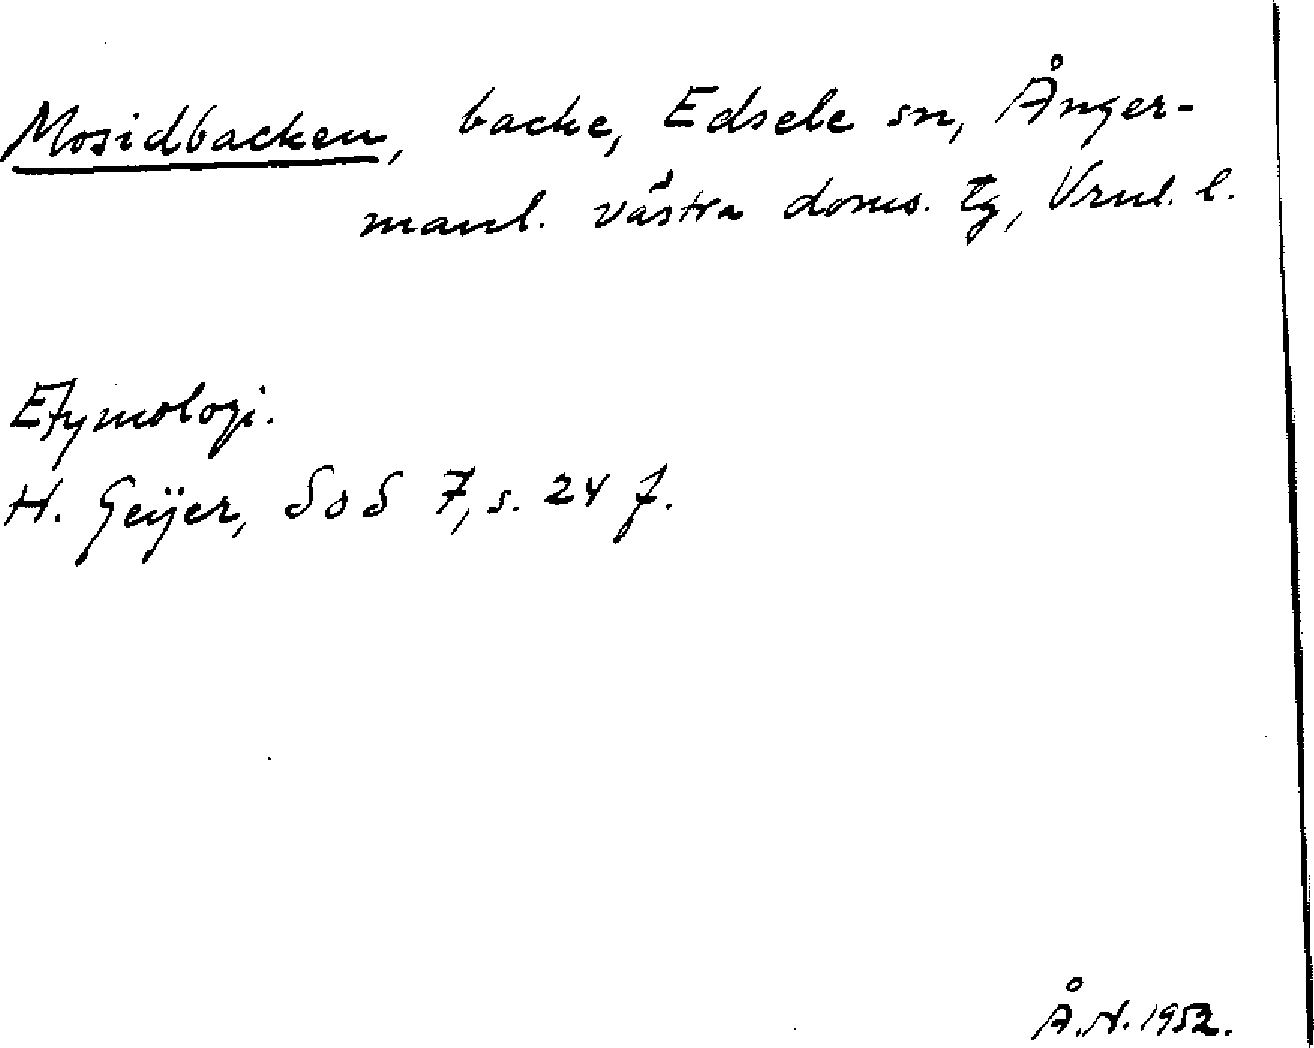 Mosidbacken, backe, Edsele sn, Ånger-
manl. västra doms. tg, Vrnl. l.
Etymologi.
H. Geijer, SoS 7, s. 24 f.
Å.N. 1952.